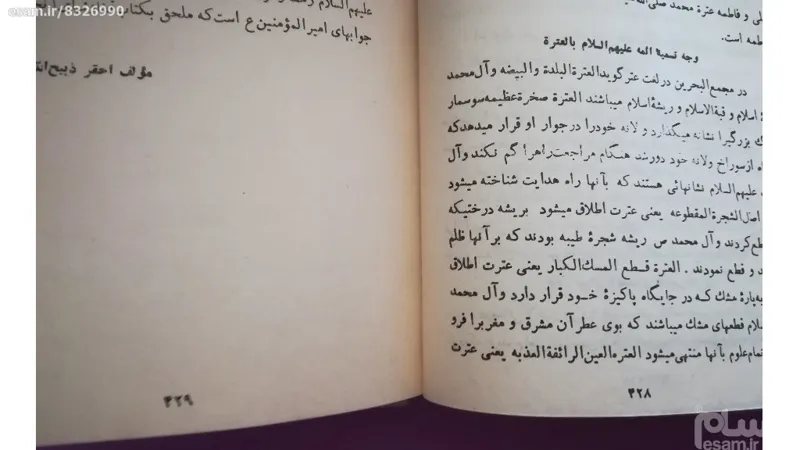 esam.ir/8326990
لی و فاطمه عترة محمد صلی‌الله
طمه است.
وجه تسمیة ائمه علیهم‌السلام بالعترة
در مجمع‌البحرین در لغت عتر گوید العترة البلدة و البیضه و آل محمد
اسلام و قبة‌الاسلام و ریشهٔ اسلام میباشند العترة صخرة عظیمه سوسمار
بزرگیرا نشانه میگذارد و لانه خودرا در جوار او قرار میدهد که
از سوراخ و لانه خود دور شد هنگام مراجعت راهرا گم نکند و آل
علیهم‌السلام نشانهائی هستند که بآنها راه هدایت شناخته میشود
اصل الشجرة المقطوعه یعنی عترت اطلاق میشود بریشه درختیکه
قطع کردند و آل محمد ص ریشه شجرهٔ طیبه بودند که بر آنها ظلم
د و قطع نمودند . العترة قطع المسك الکبار یعنی عترت اطلاق
به پارهٔ مشك که در جایگاه پاکیزهٔ خود قرار دارد و آل محمد
سلام قطعهای مشك میباشند که بوی عطر آن مشرق و مغرب را فرو
تمام علوم بآنها منتهی میشود العتره العین الرائقة العذبه یعنی عترت
۳۲۸
علیهم‌السلام
جوابهای امیرالمؤمنین ع است که ملحق بکتاب
مؤلف احقر ذبیح
۳۲۹
سام
esam.ir